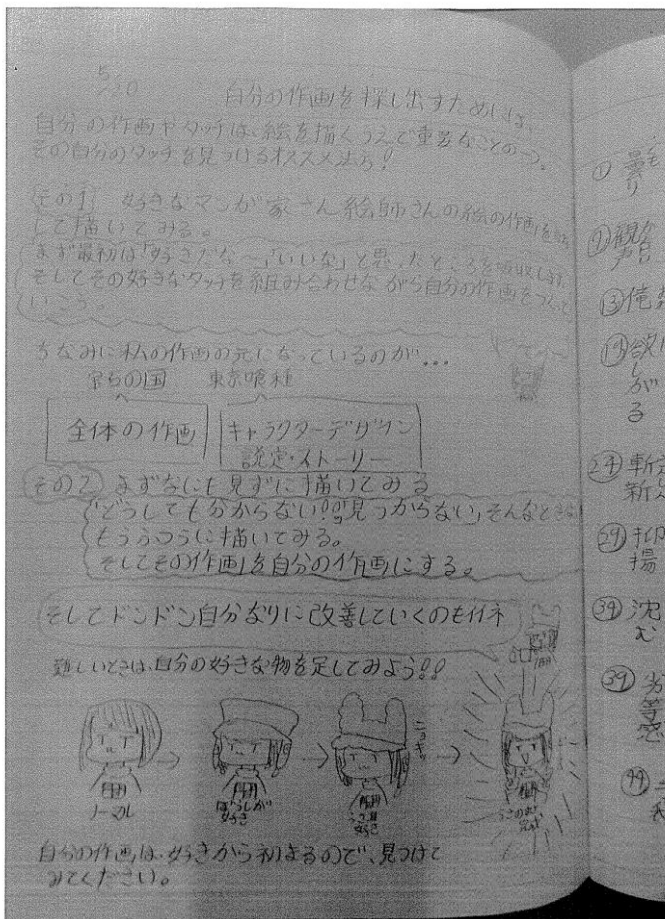 5/20
自分の作画を探し出すためには、
自分の作画やタッチは、絵を描くうえで重要なことの一つ。
その自分のタッチを見つけるオススメ法を!
その1 好きなマンガ家さん絵師さんの絵の作画を
して描いてみる。
まず最初は「好きだな〜」「いいな」と思ったところを吸収します
そしてその好きなタッチを組み合わせながら自分の作画をつくって
いこう。
ちなみに私の作画の元になっているのが…
宝石の国 東京喰種
全体の作画 キャラクターデザイン
設定・ストーリー
その2 まずなにも見ずに描いてみる
「どうしても分からない!!見つからない」そんなときは
もうふつうに描いてみる。
そしてその作画を自分の作画にする。
そしてドンドン自分なりに改善していくのもイイネ
難しいときは、自分の好きな物を足してみよう!!
ノーマル
ぼうしが
好き
ニョキッ
うさ耳
好き
完成
自分の作画は、好きから初まるので、見つけて
みてください。
① 曇り
⑨ 観
⑬ 俺
⑲ 欲しがる
㉔ 斬
新
㉙ 抑
揚
㉞ 沈む
㊴ 劣等感
㊹